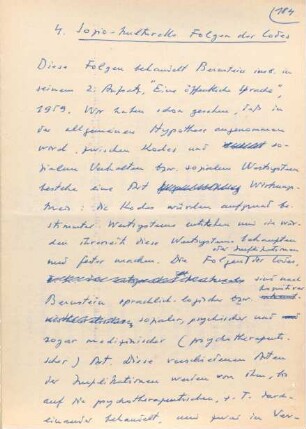 184
4. Sozio-kulturelle Folgen der Codes
Diese Folgen behandelt Bernstein insb. in
seinem 2. Aufsatz, "Eine öffentliche Sprache",
1959. Wir haben schon gesehen, daß in
der allgemeinen Hypothese angenommen
wird, zwischen Kodes und so-
zialem Verhalten bzw. sozialen Wertsystemen
bestehe eine Art Wirkungs-
kreis: die Kodes würden aufgrund be-
stimmter Wertsysteme entstehen und sie wür-
den ihrerseits diese Wertsysteme behaupten
und fester machen. Die Folgen oder Implikationen der Codes
sind nach
Bernstein sprachlich-logischer bzw. kognitiver
sozialer, psychischer und
sogar medizinischer (psychotherapeuti-
scher) Art. Diese verschiedenen Arten
der Implikationen werden von ihm, bis
auf die psychotherapeutischen, z. T. durch-
einander behandelt, und zwar in Ver-